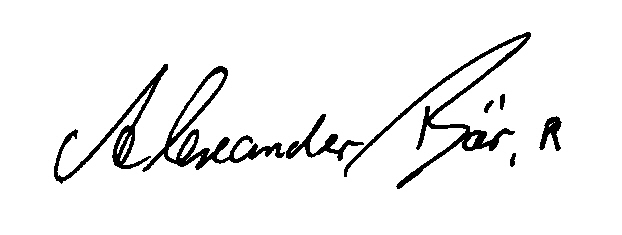 Alexander, Bär, R